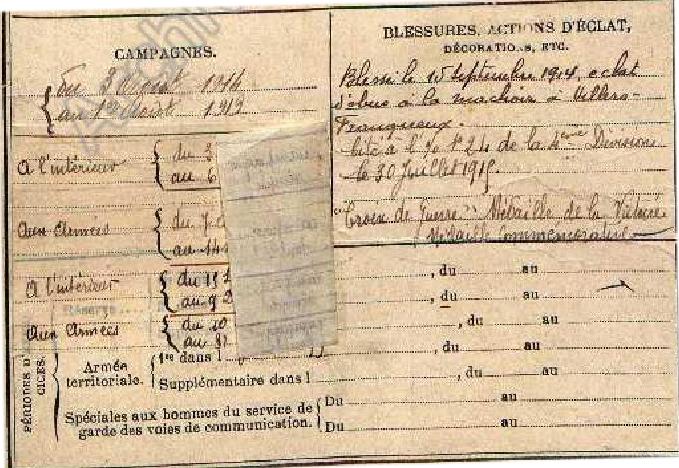 CAMPAGNES.
du 3 Août 1914
au 1er Août 1919
A l'intérieur
du 3
au 6
aux Armées
du 7
au 14
A l'intérieur
du 15
au 9
Réserve
aux Armées
du 10
au
BLESSURES, ACTIONS D'ÉCLAT,
DÉCORATIONS, ETC.
Blessé le 15 Septembre 1914, eclat
d'obus a la machoire a Villers-
Franqueux.
Cité à l'o/ N° 24 de la 4eme Division
le 30 Juillet 1915.
"Croix de Guerre" Médaille de la Victoire
Médaille Commémorative
, du au
, du au
, du au
, du au
PÉRIODES D'
CICES.
Armée
territoriale.
1re dans l
Supplémentaire dans l , du au
Spéciales aux hommes du service de
garde des voies de communication.
Du au
Du au